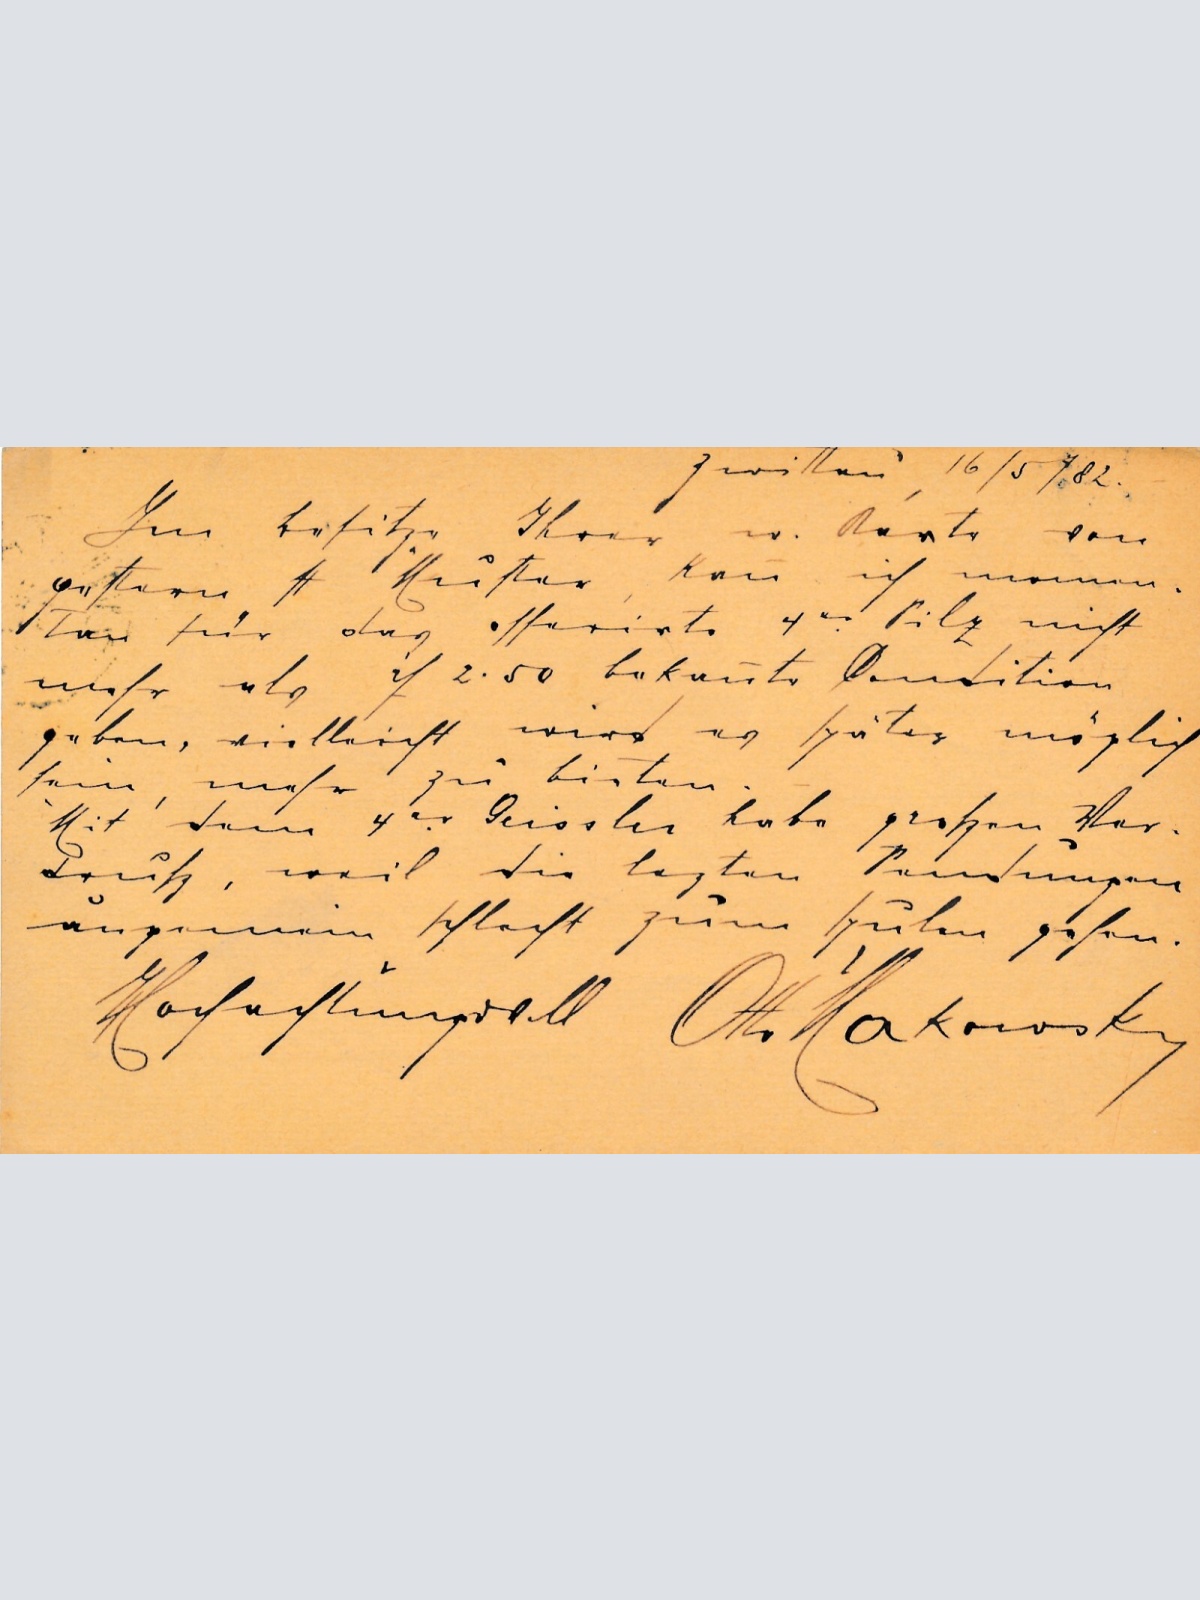 Zwittau, 16/5 /82.
Im besitze Ihrer w. Karte von
gestern & Muster, kan̄ ich momen-
tan für das offerirte 4er Pilz nicht
mehr als f 2.50 bekan̄te Condition
geben, vielleicht wird es später möglich
sein, mehr zu bieten.
Mit dem 4er Geissler habe großen Ver-
druß, weil die lezten Sendungen
ungemein schlecht zum spulen gehen.
Hochachtungsvoll Otto Makowsky